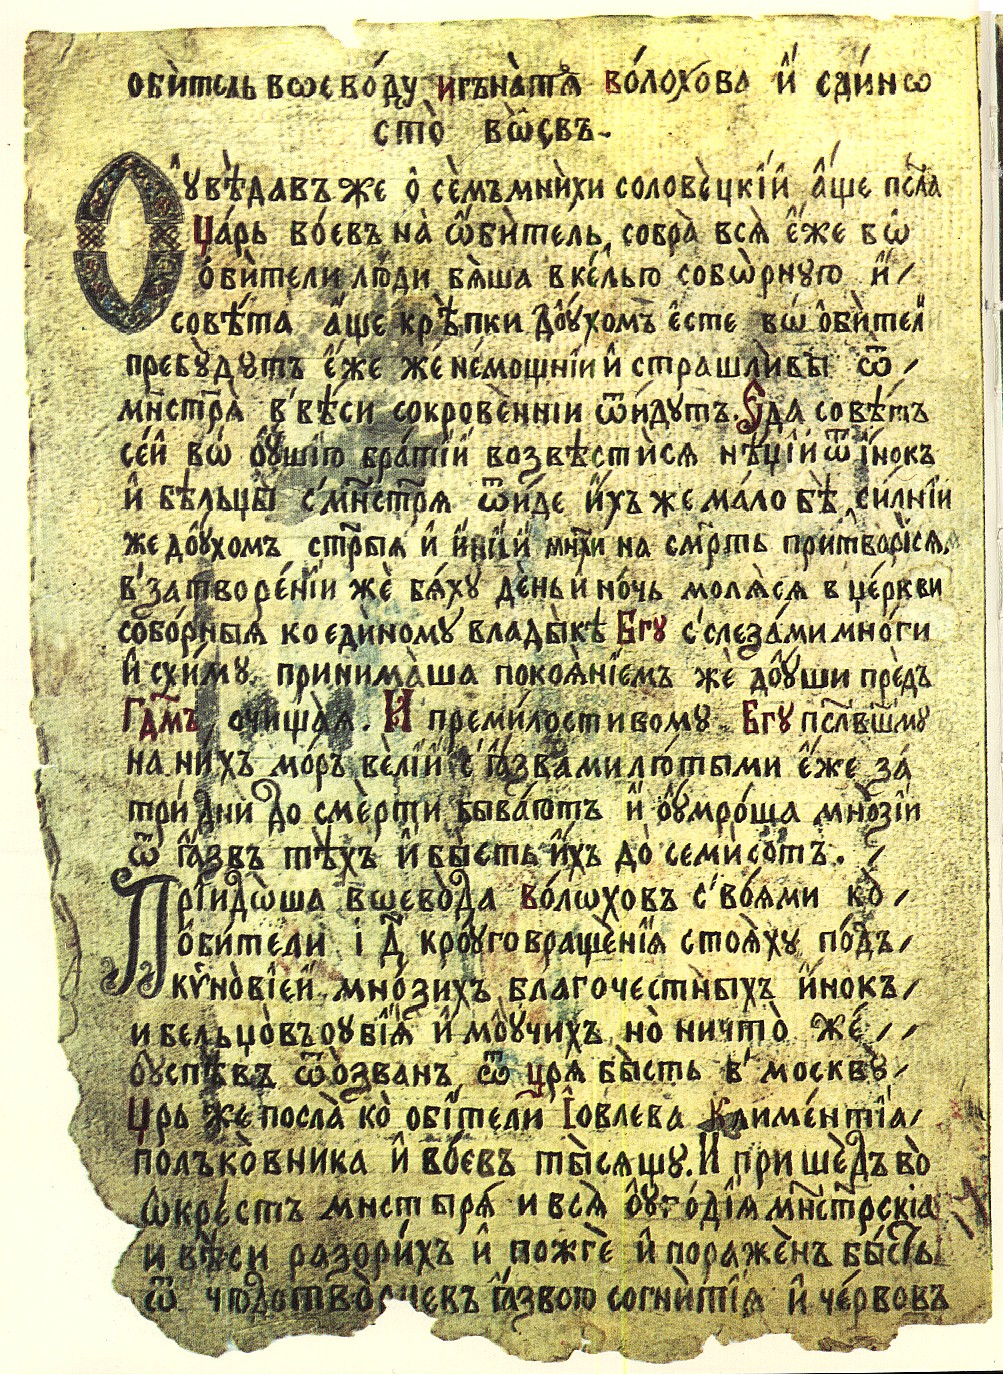 обитель вѡеводу игънатїѧ волохова и єдинѡ
сто вѡєвъ.
Оувѣдавъ же ѡ сємъ мнихи соловєцкїи аще псла
царь воєвъ на ѡбитєль, собра всѧ єже в ѡ
обители люди бѧша в кєлью соборную и
совѣта аще крѣпки дѹхомъ єсте во обител
пребудутъ єже же немощнїи и страшливы ѿ
мнстрѧ в вѣси сокровеннїи ѿидутъ. Єда совѣтъ
сей во ѹшїю братїи возвѣстисѧ нѣцїи ѿ їнокъ
и бѣльцы с мнстрѧ ѿиде ихъ же мало бѣ, силнїи
же дѹхомъ стрыѧ и инїи мнхи на смрть притворїсѧ,
в затворенїи же бѧху день и ночь молѧсѧ в церкви
соборныѧ ко единому владыкѣ Бгу с слезами многи
и схиму, принимаша покоѧнїемъ же дѹши предъ
Гдмъ очищаѧ. И премилостивому Бгу пславшму
на нихъ моръ велїи с ꙗзвами лютыми єже за
три дни до смерти бывають и ѹмроша мнозїи
ѿ ꙗзвъ тѣхъ и бысть ихъ до семисотъ.
Прїидоша вѡевода волѡховъ с воѧми ко
обители і д кроуговращенїѧ стоѧху подъ
кѵновїей, мнозихъ благочестныхъ инокъ
и бельцовъ оубїѧ и моучихъ, но ничто же
оуспѣвъ ѿозванъ ѿ црѧ бысть в москву
Црь же посла ко обители Їовлева Климентїа
полъковника и воєвъ тысѧщу. И пришедъ во
ѡкрестъ мнстырѧ и всѧ оугодїѧ мнстрскїа
и вѣси разорихъ и пожге и пораженъ бысть
ѿ чюдотворцевъ ꙗзвою согнитїѧ и червовъ